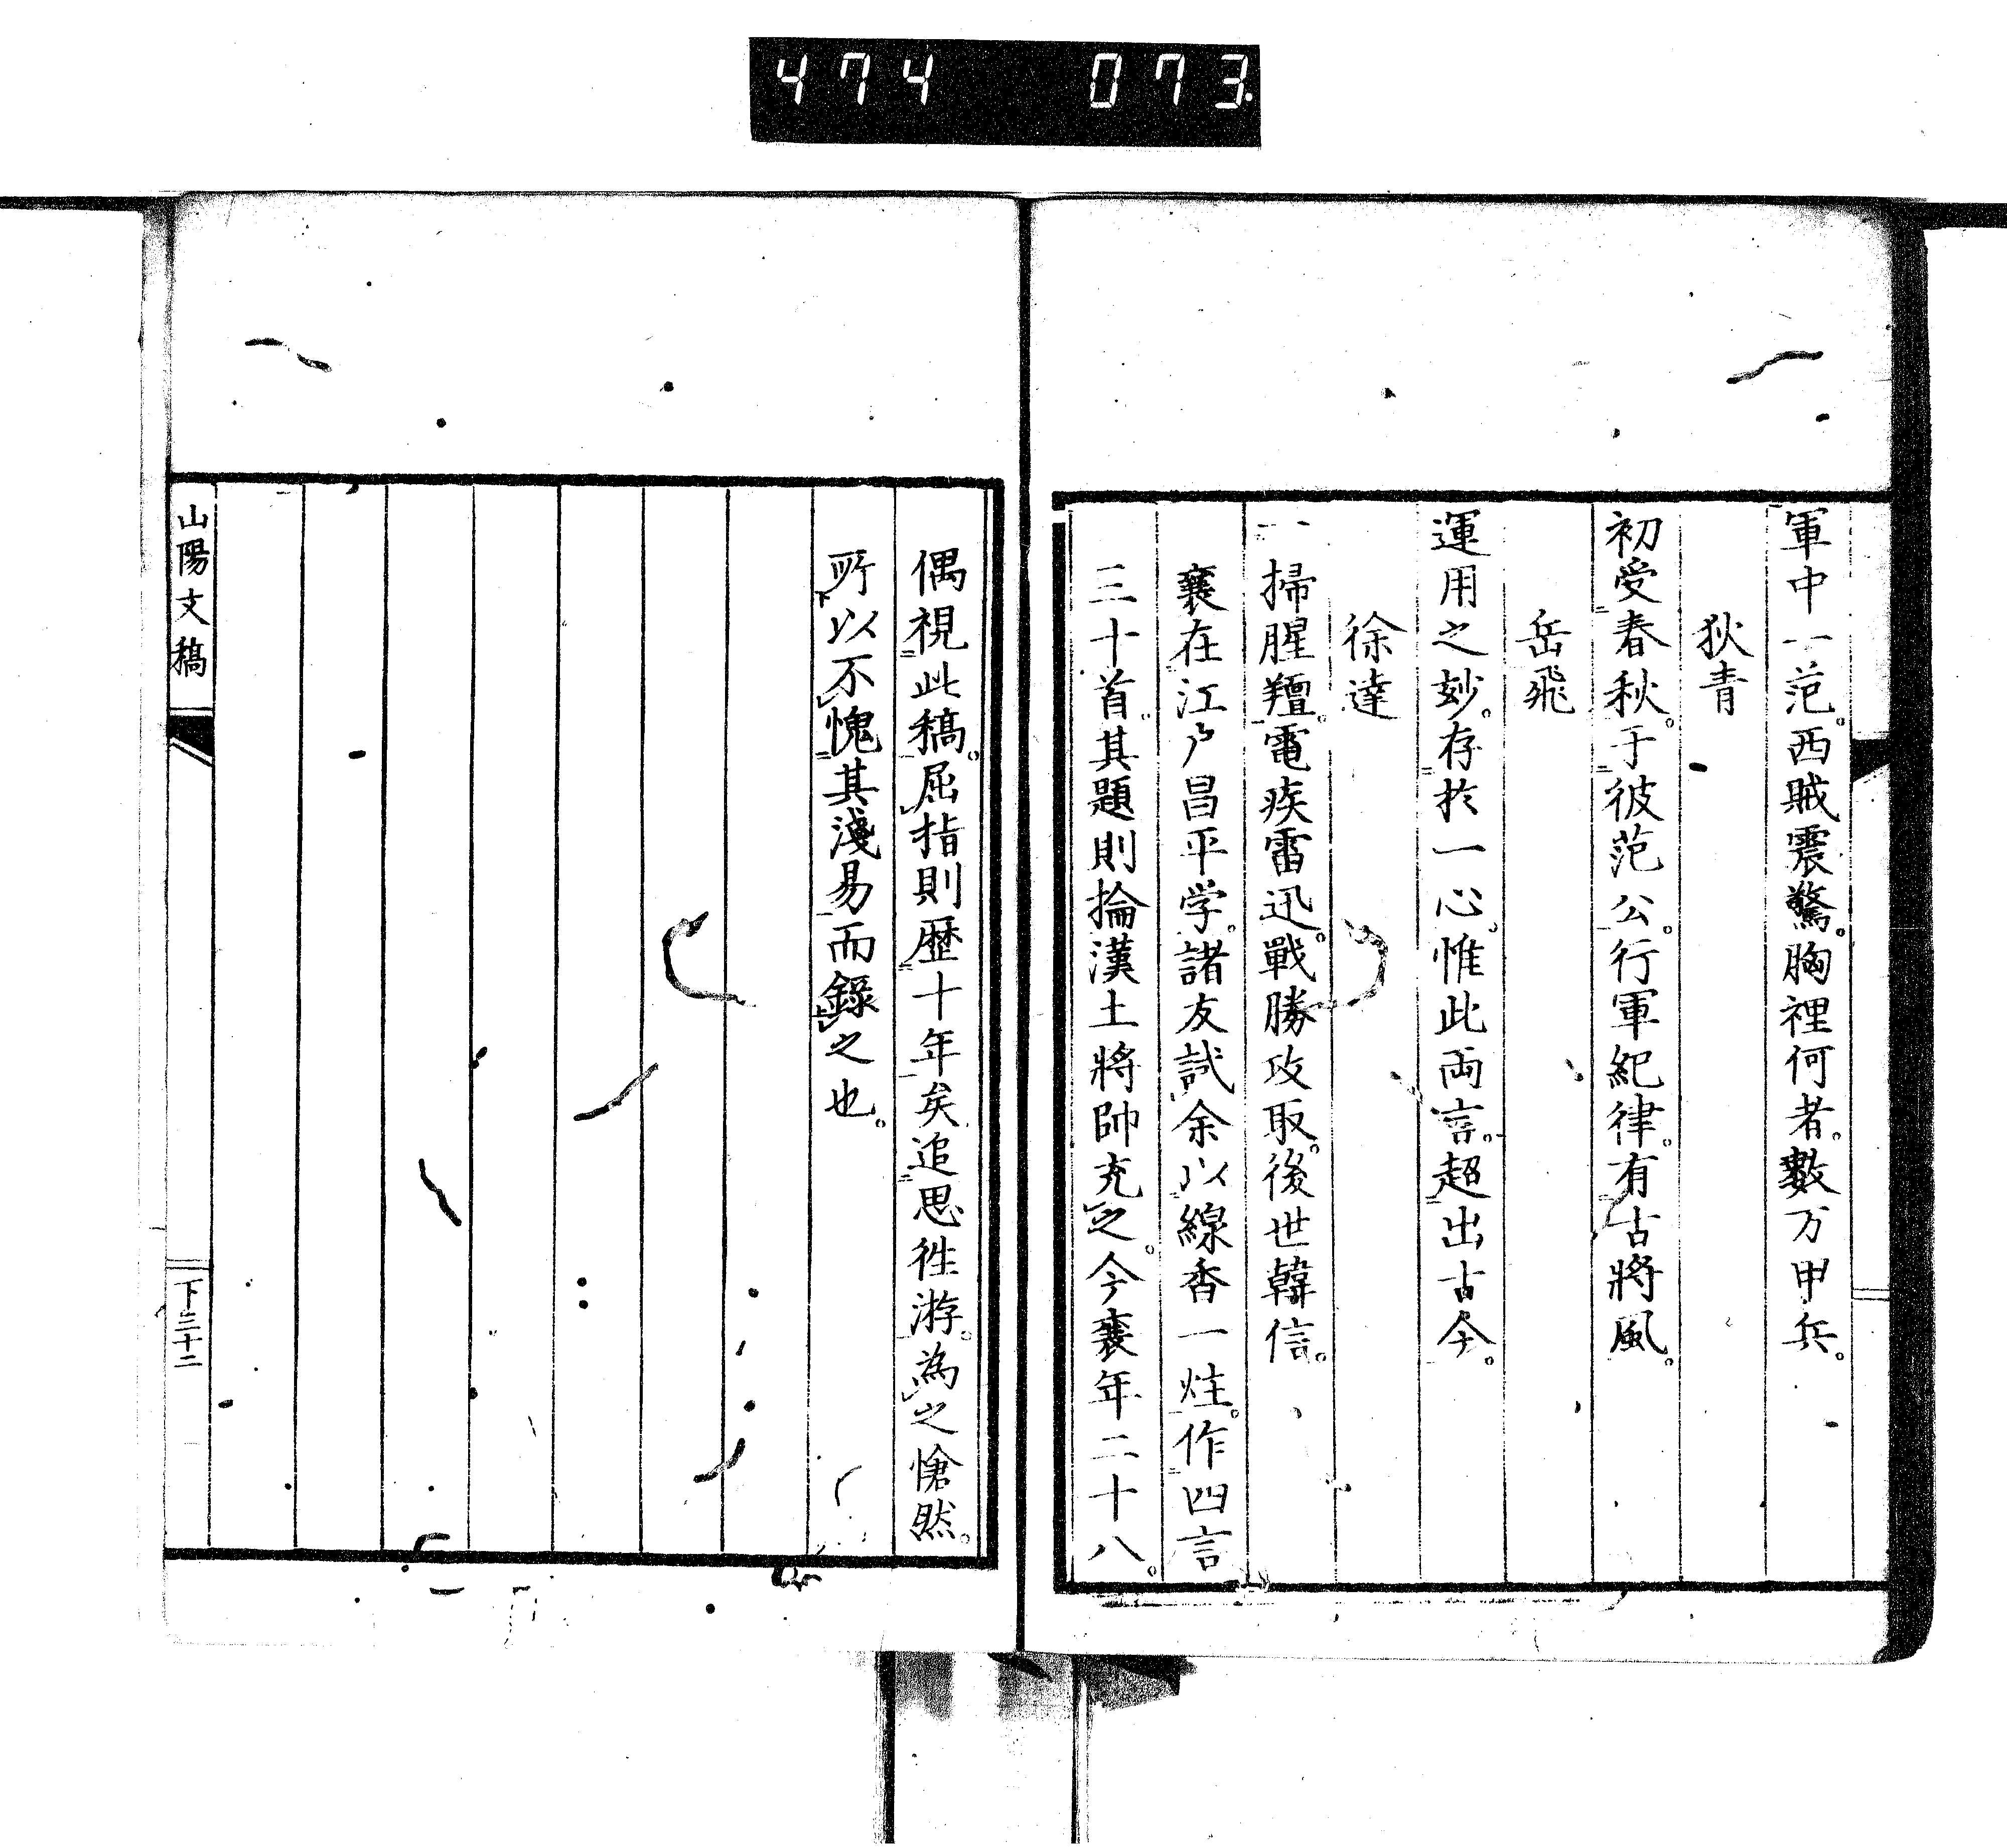 474 073
軍中一范。西賊震驚。胸裡何者。數万甲兵。
狄青
初受春秋。于彼范公。行軍紀律。有古將風。
岳飛
運用之妙。存於一心。惟此両言。超出古今。
徐達
一掃腥羶。電疾雷迅。戰勝攻取。後世韓信。
襄在江戸昌平学。諸友試余以線香一炷。作四言
三十首。其題則掄漢土將帥充之。今襄年二十八。
偶視此稿。屈指則歴十年矣追思徃游。為之愴然。
所以不愧其淺易而録之也。
山陽文稿
下三十二